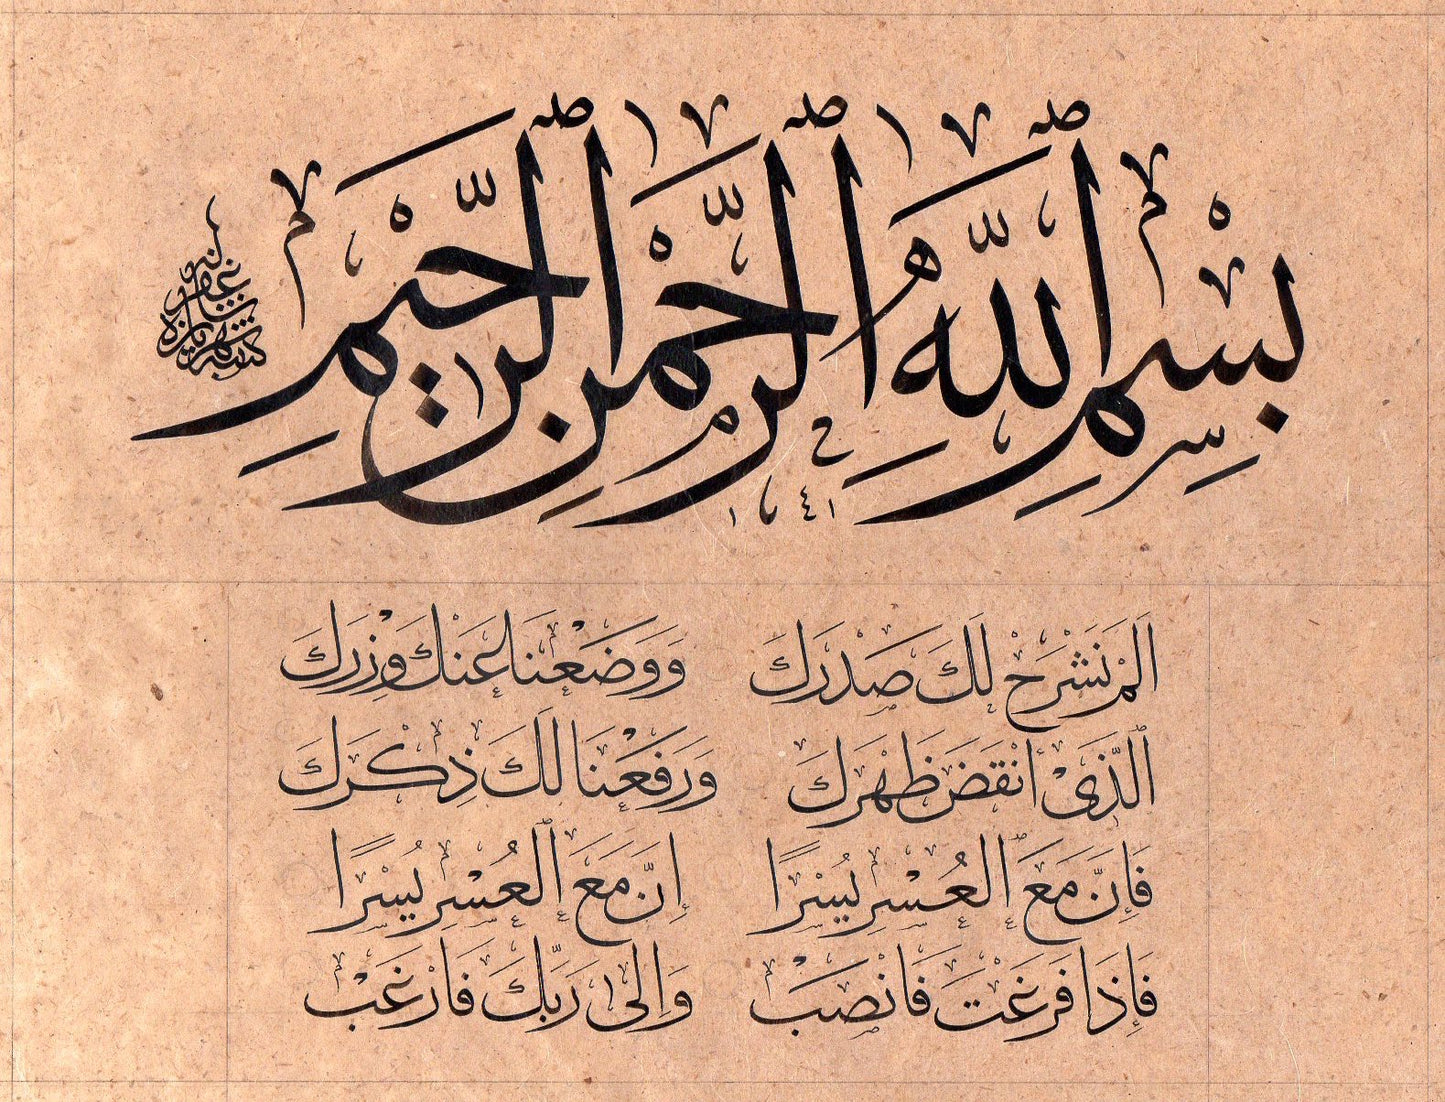 بِسْمِ ٱللَّهِ ٱلرَّحْمٰنِ ٱلرَّحِيمِ
١٤١
اَلَمْ نَشْرَحْ لَكَ صَدْرَكَ وَوَضَعْنَا عَنْكَ وِزْرَكَ
ٱلَّذِىٓ أَنْقَضَ ظَهْرَكَ وَرَفَعْنَا لَكَ ذِكْرَكَ
فَإِنَّ مَعَ ٱلْعُسْرِ يُسْرًا إِنَّ مَعَ ٱلْعُسْرِ يُسْرًا
فَإِذَا فَرَغْتَ فَانْصَبْ وَاِلٰى رَبِّكَ فَارْغَبْ